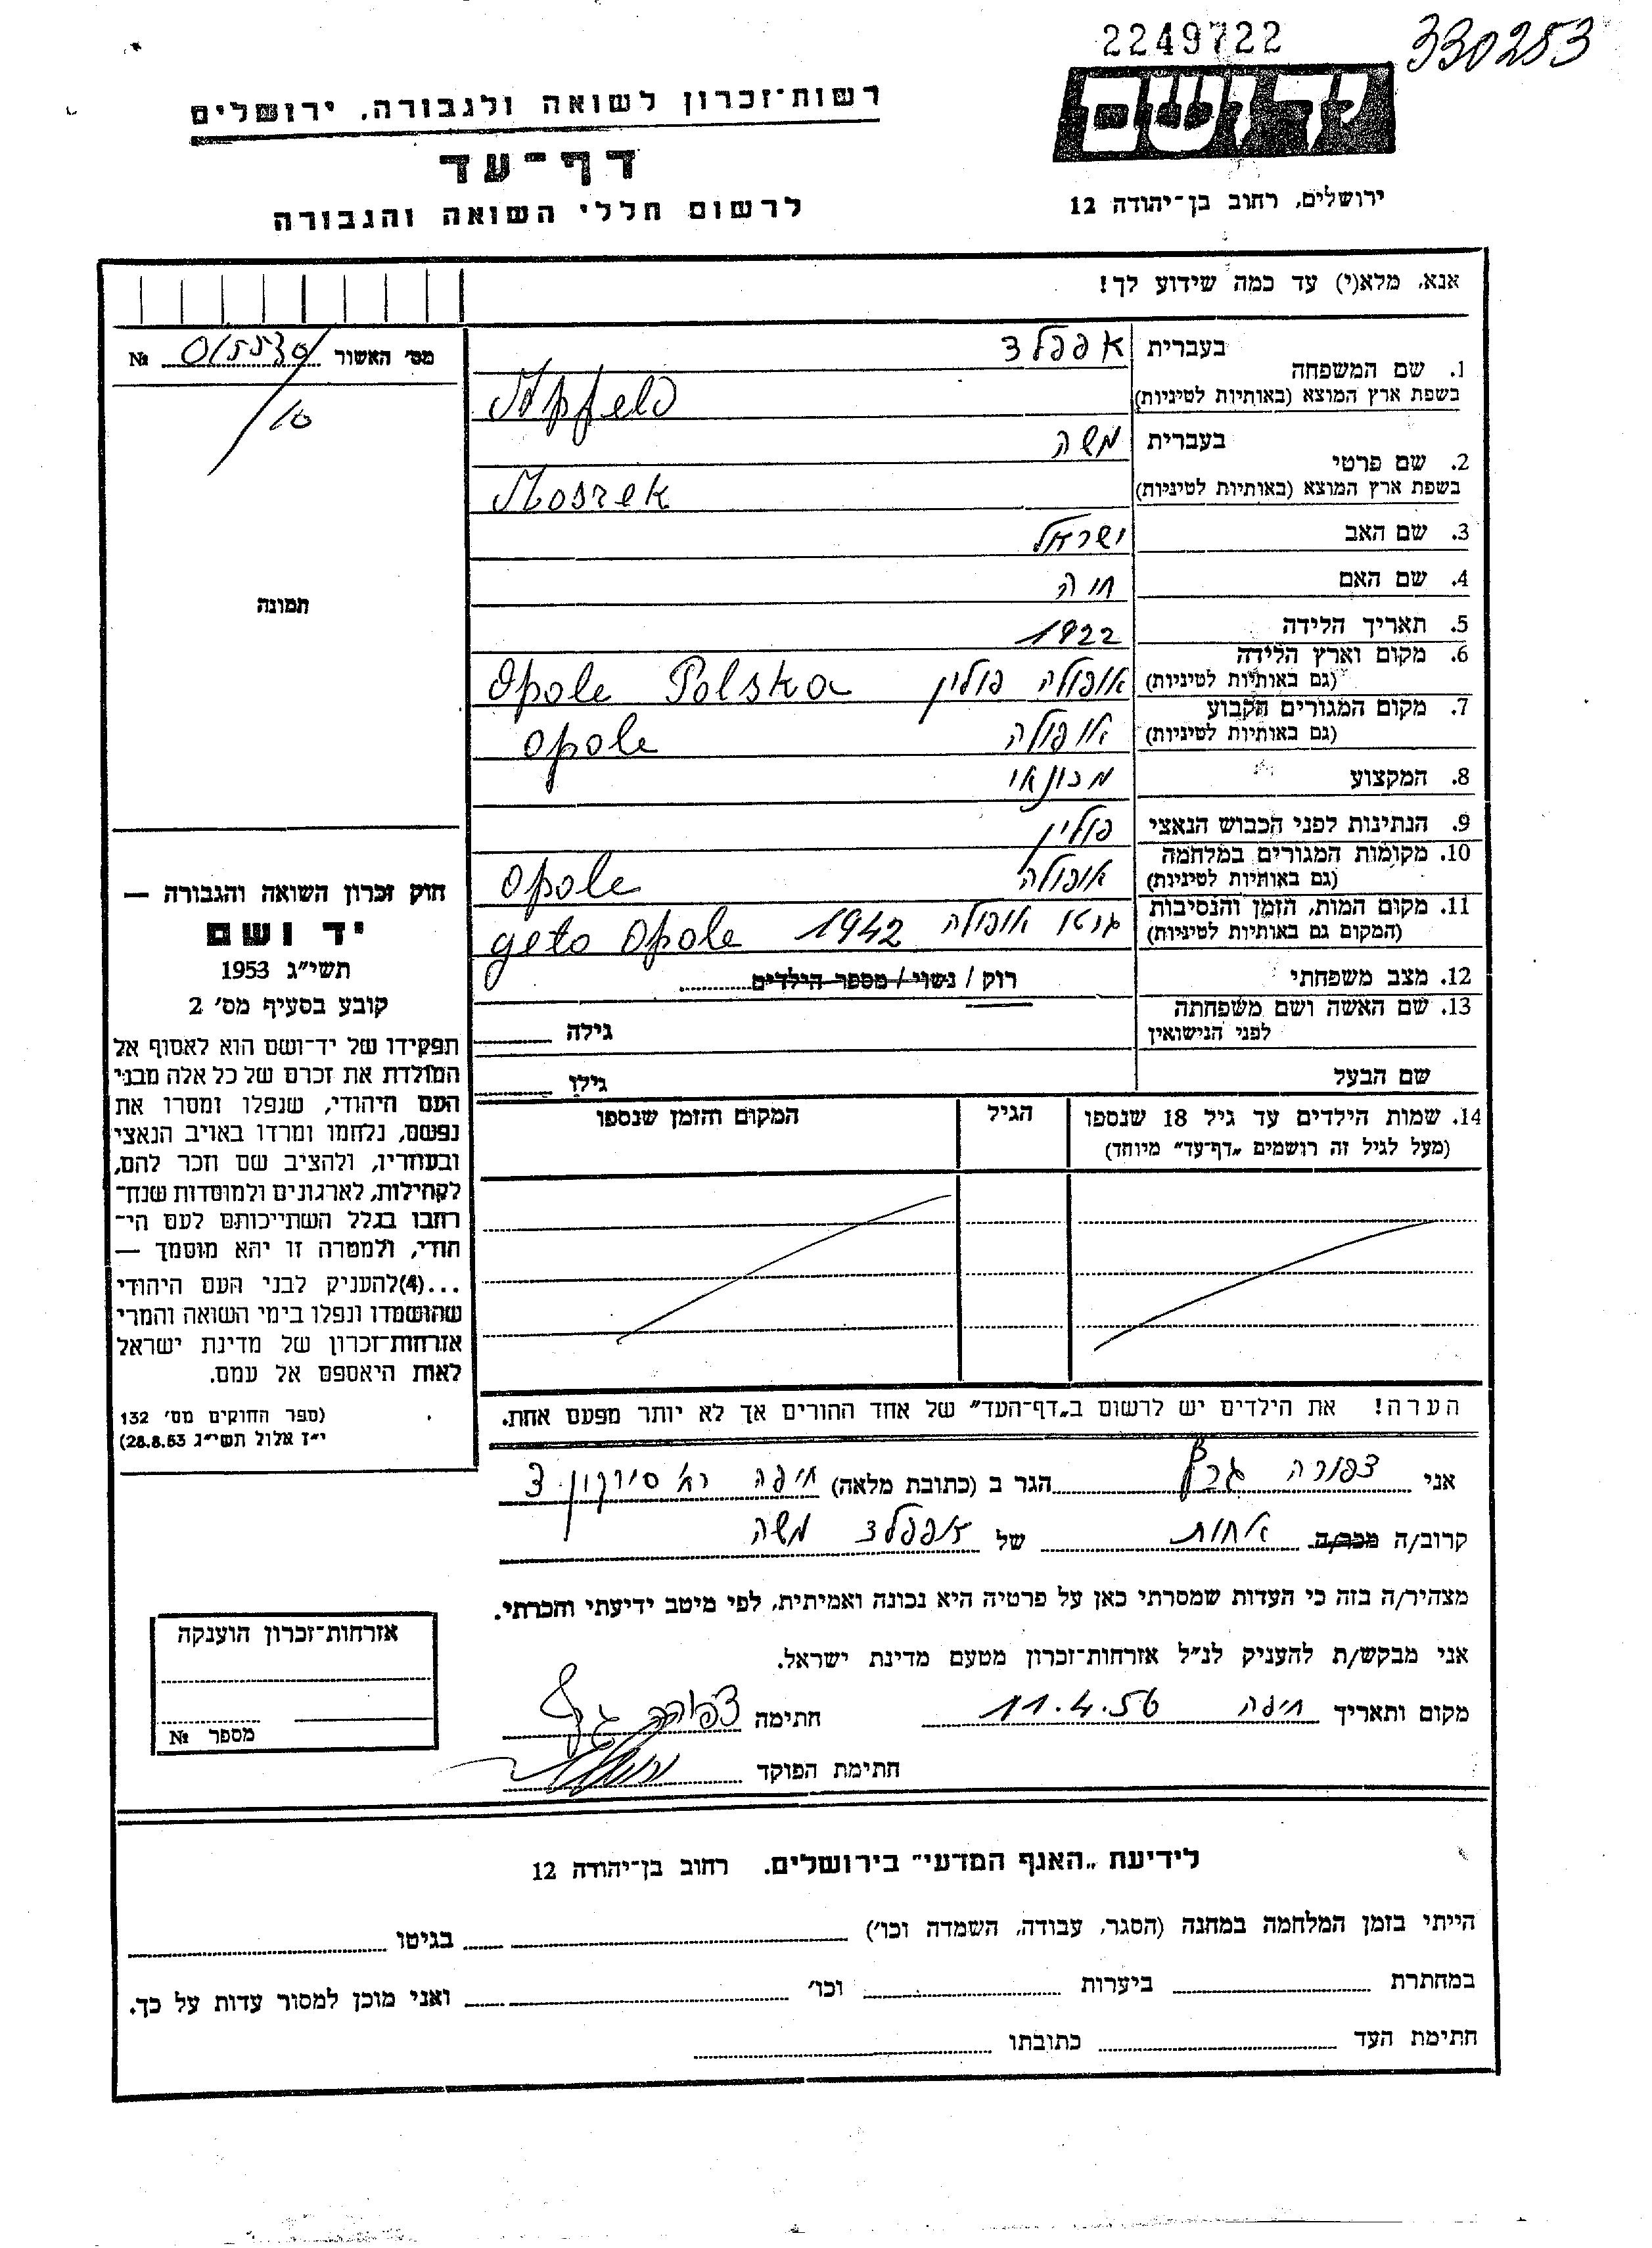 2249722
330253
יד ושם
ירושלים, רחוב בן־יהודה 12
רשות־זכרון לשואה ולגבורה, ירושלים
דף־עד
לרשום חללי השואה והגבורה
אנא, מלא(י) עד כמה שידוע לך!
1. שם המשפחה
בעברית אפפלד
בשפת ארץ המוצא (באותיות לטיניות) Apfeld
2. שם פרטי
בעברית משה
בשפת ארץ המוצא (באותיות לטיניות) Moszek
3. שם האב ישראל
4. שם האם חוה
5. תאריך הלידה 1922
6. מקום וארץ הלידה
(גם באותיות לטיניות) אופולה פולין Opole Polska
7. מקום המגורים הקבוע
(גם באותיות לטיניות) אופולה Opole
8. המקצוע מכונאי
9. הנתינות לפני הכבוש הנאצי פולין
10. מקומות המגורים במלחמה
(גם באותיות לטיניות) אופולה Opole
11. מקום המות, הזמן והנסיבות
(המקום גם באותיות לטיניות) גיטו אופולה 1942 geto Opole
12. מצב משפחתי רוק / נשוי / מספר הילדים
13. שם האשה ושם משפחתה
לפני הנישואין
גילה
שם הבעל גילו
14. שמות הילדים עד גיל 18 שנספו הגיל המקום והזמן שנספו
(מעל לגיל זה רושמים „דף־עד״ מיוחד)
הערה! את הילדים יש לרשום ב„דף־העד״ של אחד ההורים אך לא יותר מפעם אחת.
מס׳ האשור № 
10
תמונה
חוק זכרון השואה והגבורה —
יד ושם
תשי״ג 1953
קובע בסעיף מס׳ 2
תפקידו של יד־ושם הוא לאסוף אל
המולדת את זכרם של כל אלה מבני
העם היהודי, שנפלו ומסרו את
נפשם, נלחמו ומרדו באויב הנאצי
ובעוזריו, ולהציב שם וזכר להם,
לקהילות, לארגונים ולמוסדות שנח־
רבו בגלל השתייכותם לעם הי־
הודי, ולמטרה זו יהא מוסמך —
...(4)להעניק לבני העם היהודי
שהושמדו ונפלו בימי השואה והמרי
אזרחות־זכרון של מדינת ישראל
לאות היאספם אל עמם.
(ספר החוקים מס׳ 132
י״ז אלול תשי״ג 28.8.53)
אני צפורה גרף הגר ב (כתובת מלאה) חיפה סירקין 3
קרוב/ה מכר/ה אחות של אפפלד משה
מצהיר/ה בזה כי העדות שמסרתי כאן על פרטיה היא נכונה ואמיתית, לפי מיטב ידיעתי והכרתי.
אני מבקש/ת להעניק לנ״ל אזרחות־זכרון מטעם מדינת ישראל.
מקום ותאריך חיפה 11.4.56 חתימה צפורה גרף
חתימת הפוקד
אזרחות־זכרון הוענקה
מספר №
לידיעת „האגף המדעי״ בירושלים. רחוב בן־יהודה 12
הייתי בזמן המלחמה במחנה (הסגר, עבודה, השמדה וכו׳) בגיטו
במחתרת ביערות וכו׳ ואני מוכן למסור עדות על כך.
חתימת העד כתובתו